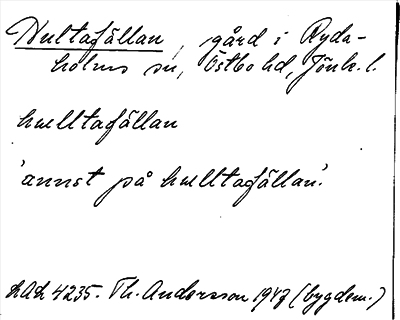 Hultafällan, gård i Ryda-
holms sn, Östbo hd, Jönk. l.
hulltafällan
'annst på hulltafällan'.
LAL 4235. Th. Andersson 1947 (bygdem.)